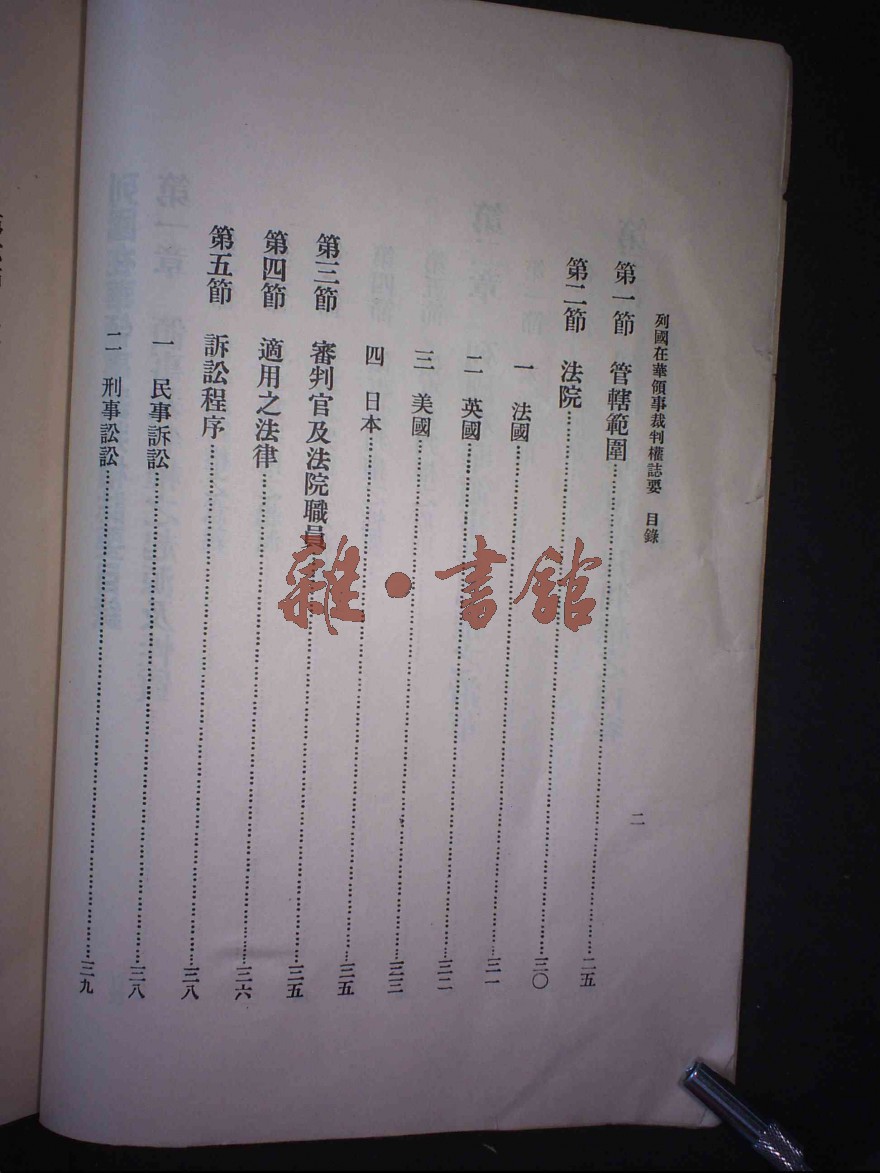 列國在華領事裁判權誌要 目錄
二
第一節 管轄範圍……二五
第二節 法院……三〇
一 法國……三一
二 英國……三二
三 美國……三三
四 日本……三五
第三節 審判官及法院職員……三五
第四節 適用之法律……三六
第五節 訴訟程序……三八
一 民事訴訟……三八
二 刑事訟訟……三九
雜·書館